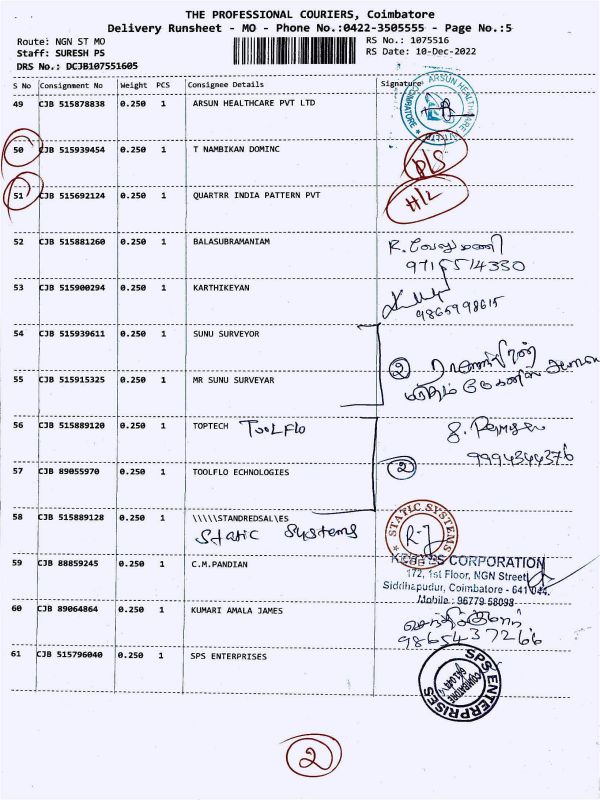 THE PROFESSIONAL COURIERS, Coimbatore
Delivery Runsheet - MO - Phone No.:0422-3505555 - Page No.:5
Route: NGN ST MO RS No.: 1075516
Staff: SURESH PS RS Date: 10-Dec-2022
DRS No.: DCJB107551605
S No Consignment No Weight PCS Consignee Details Signature
49 CJB 515878838 0.250 1 ARSUN HEALTHCARE PVT LTD
ARSUN HEALTHCARE
COIMBATORE
50 CJB 515939454 0.250 1 T NAMBIKAN DOMINC D/S
51 CJB 515692124 0.250 1 QUARTRR INDIA PATTERN PVT H/L
52 CJB 515881260 0.250 1 BALASUBRAMANIAM R. வேலுமணி
9715514330
53 CJB 515900294 0.250 1 KARTHIKEYAN
9865998615
54 CJB 515939611 0.250 1 SUNU SURVEYOR
2
55 CJB 515915325 0.250 1 MR SUNU SURVEYAR
56 CJB 515889120 0.250 1 TOPTECH TOOLFLO
9994344376
57 CJB 89055970 0.250 1 TOOLFLO ECHNOLOGIES 2
58 CJB 515889128 0.250 1 \\\\\STANDREDSAL\ES
Static Systems
STATIC SYSTEMS
59 CJB 88859245 0.250 1 C.M.PANDIAN
CORPORATION
172, 1st Floor, NGN Street,
Siddhapudur, Coimbatore - 641 044.
Mobile : 96779 58098
60 CJB 89064864 0.250 1 KUMARI AMALA JAMES
9865437266
61 CJB 515796040 0.250 1 SPS ENTERPRISES
SPS ENTERPRISES
COIMBATORE
2